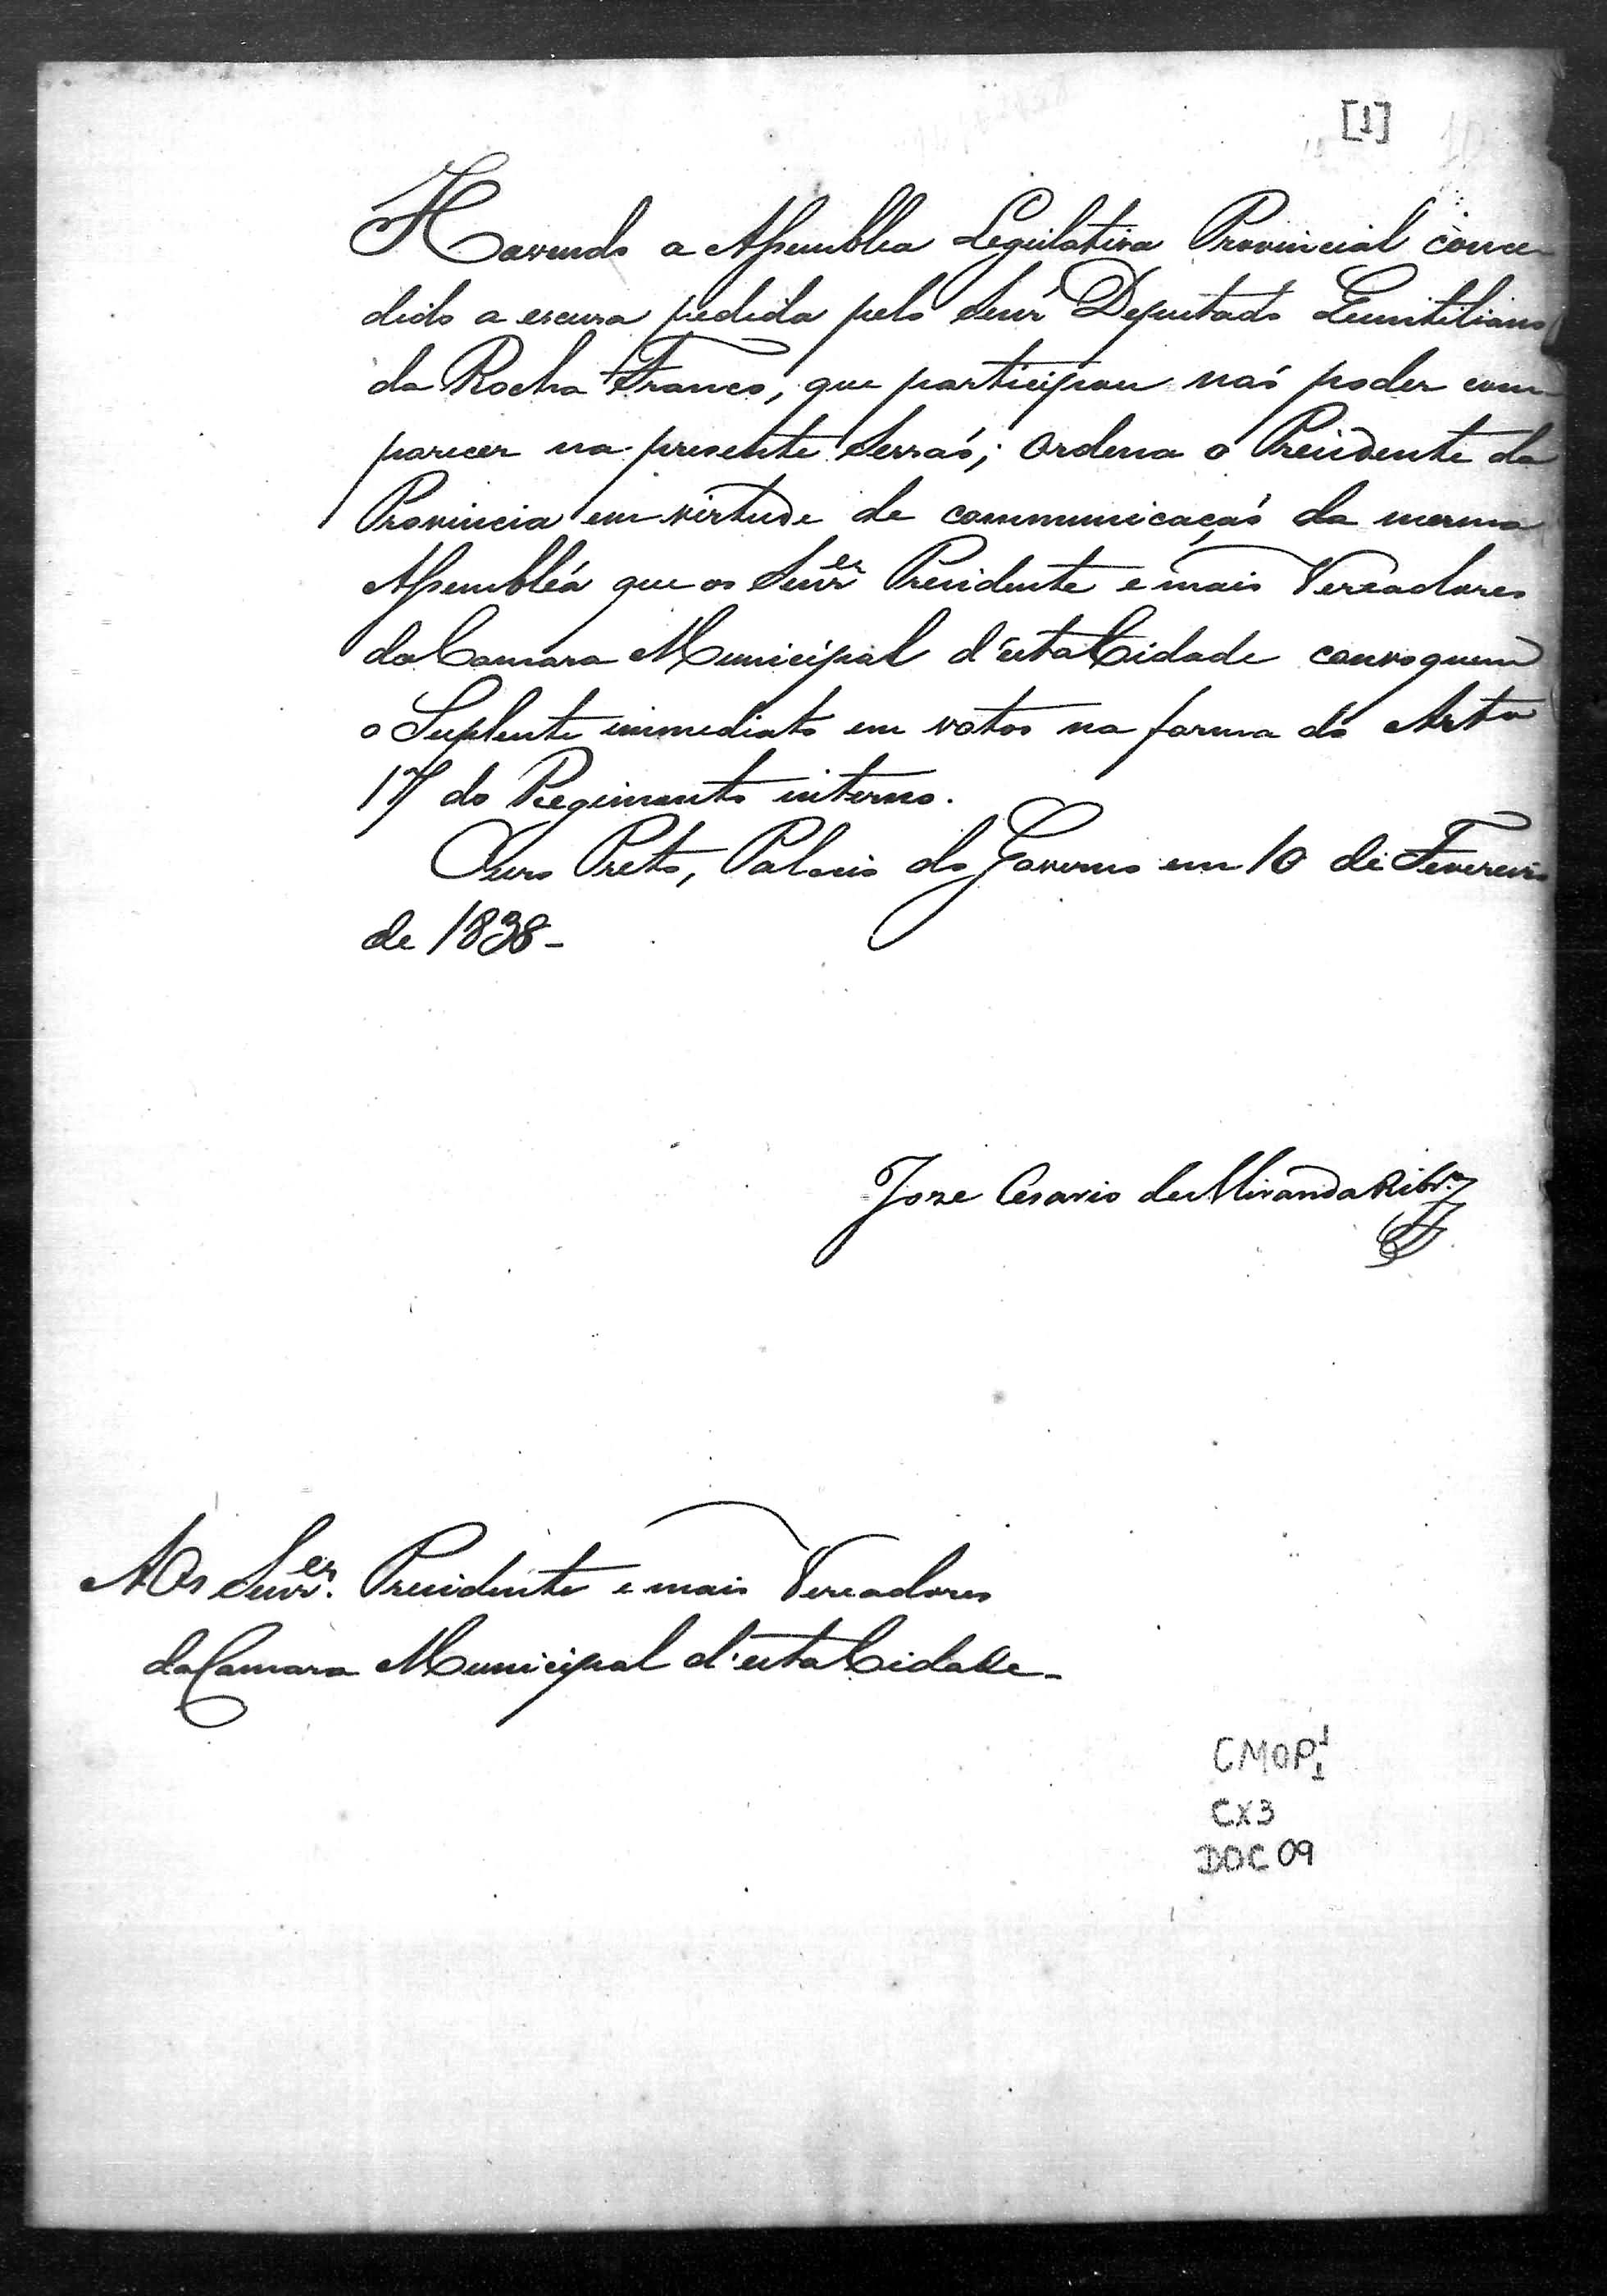 [1]
Havendo a Assemblea Legislativa Provincial conce-
dido a escusa pedida pelo Senr Deputado Quintiliano
da Rocha Franco, que participou naõ poder com-
parecer na presente Sessaõ; Ordena o Presidente da
Provincia em virtude de communicaçaõ da mesma
Assembléa que os Senres Presidente e mais Vereadores
da Camara Municipal d'esta Cidade convoquem
o Suplente immediato em votos na forma do Arto
17 do Regimento interno.
Ouro Preto, Palacio do Governo em 10 de Fevereiro
de 1838-
Jose Cesario de Miranda Ribro
AOs Senres. Presidente e mais Vereadores
da Camara Municipal d'esta Cidade-
CMOP 1
1
CX3
DOC 09